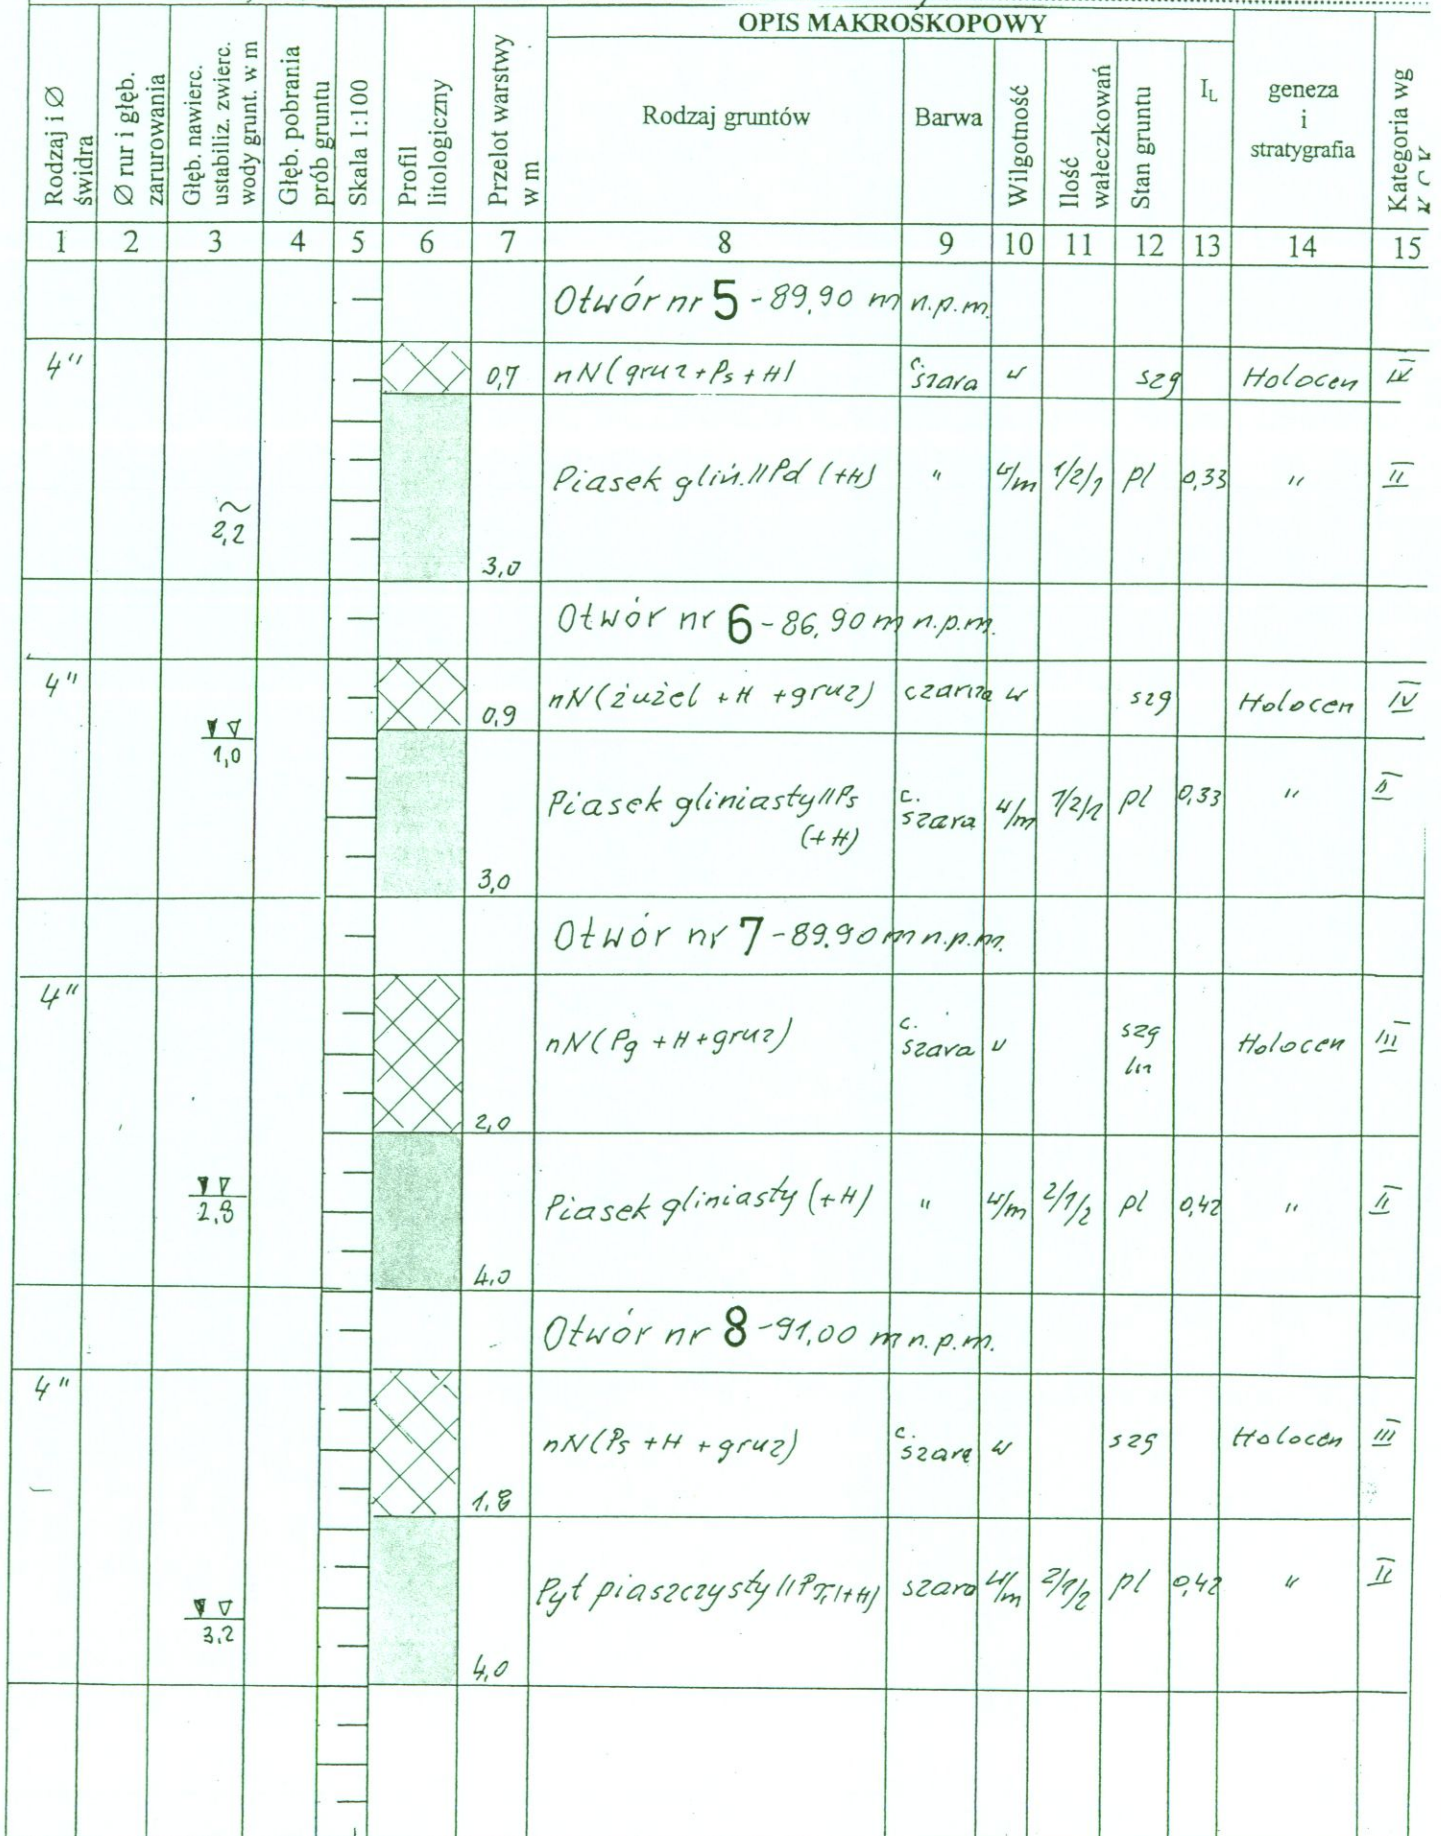 OPIS MAKROSKOPOWY
Rodzaj i Ø świdra
Ø rur i głęb. zarurowania
Głęb. nawierc. ustabiliz. zwierc. wody grunt. w m
Głęb. pobrania prób gruntu
Skala 1:100
Profil litologiczny
Przelot warstwy w m
Rodzaj gruntów
Barwa
Wilgotność
Ilość wałeczkowań
Stan gruntu
I_L
geneza i stratygrafia
Kategoria wg
1 2 3 4 5 6 7 8 9 10 11 12 13 14 15
Otwór nr 5 - 89,90 m n.p.m.
4" 0,7 nN (gruz + Ps + H) c. szara w szg Holocen IV
Piasek glin. // Pd (+H) " w/m 1/2/1 pl 0,33 " II
~
2,2
3,0
Otwór nr 6 - 86,90 m n.p.m.
4" 0,9 nN (żużel + H + gruz) czarna w szg Holocen IV
1,0
Piasek gliniasty // Ps c. szara w/m 1/2/1 pl 0,33 " II
(+H)
3,0
Otwór nr 7 - 89.90 m n.p.m.
4" nN (Pg + H + gruz) c. szara w szg Holocen III
ln
2,0
2,8 Piasek gliniasty (+H) " w/m 2/1/2 pl 0,42 " II
4,0
Otwór nr 8 - 91,00 m n.p.m.
4" nN (Ps + H + gruz) c. szara w szg Holocen III
1,8
Pył piaszczysty // (+H) szara w/m 2/1/2 pl 0,42 " II
3,2
4,0